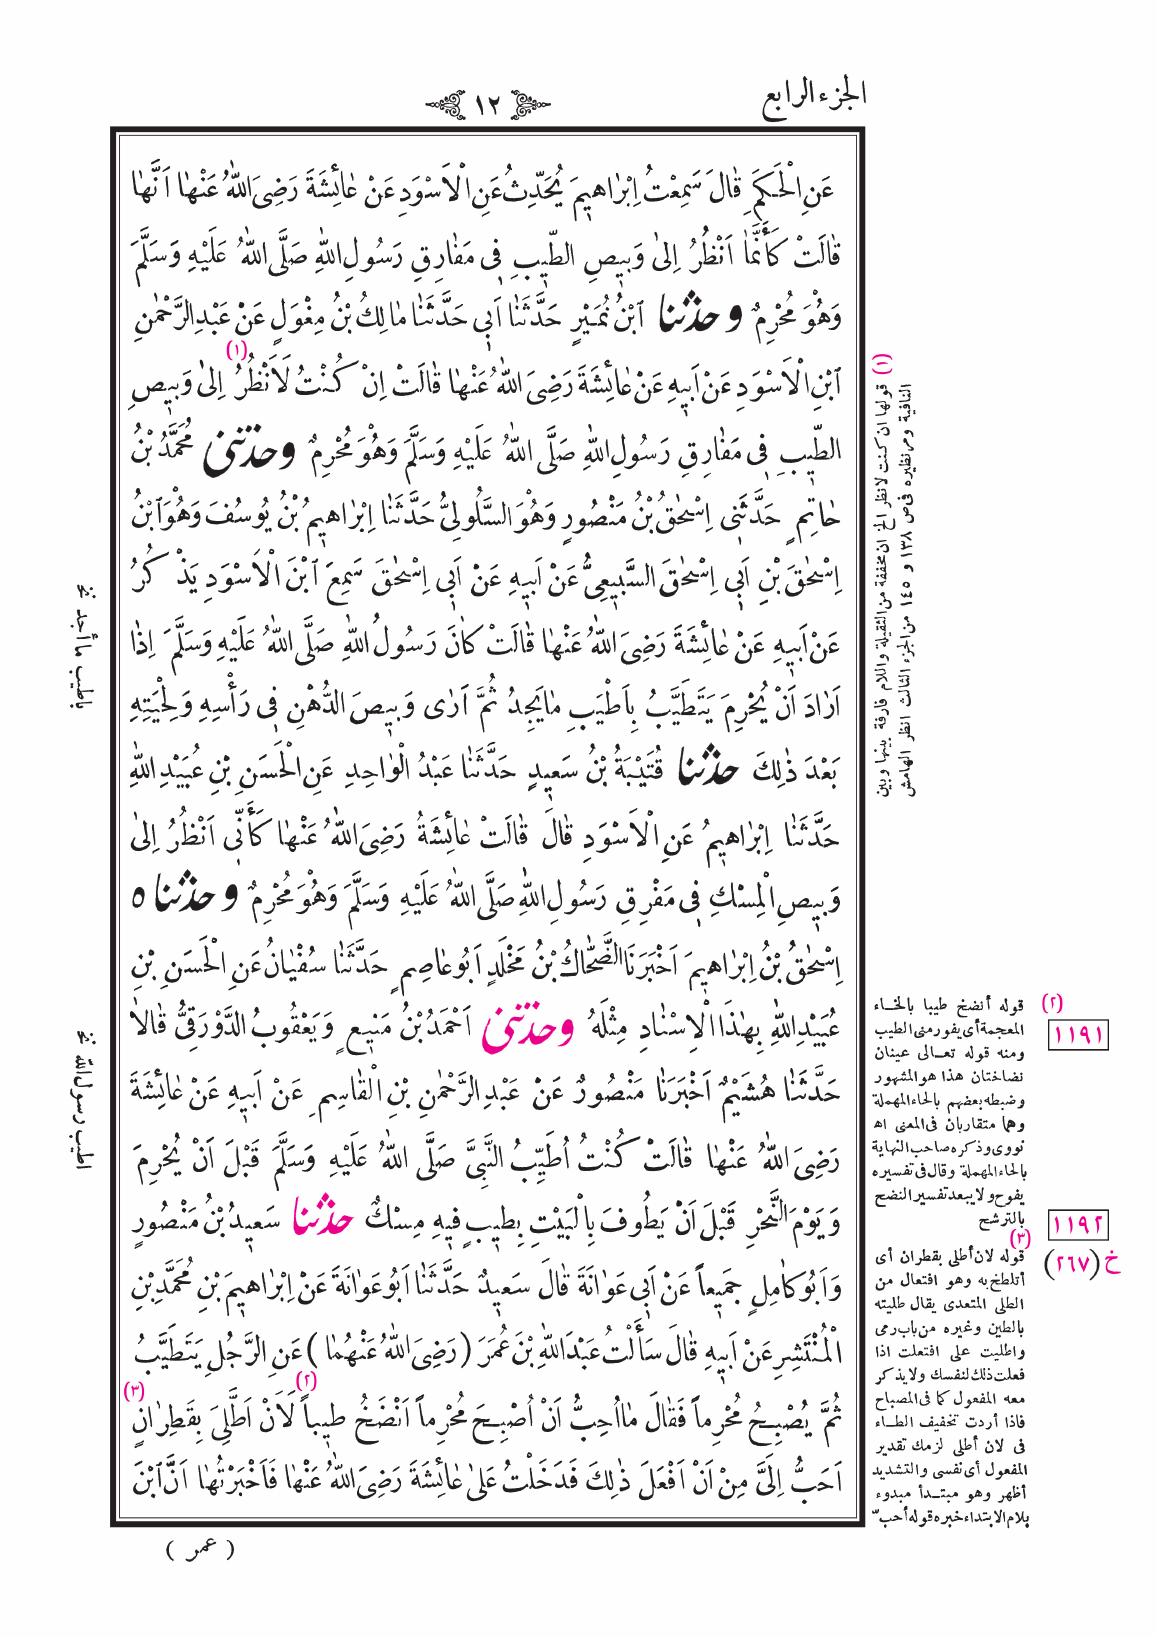 الجزء الرابع
١٢
عَنِ الْحَكَمِ قَالَ سَمِعْتُ اِبْرَاهِيمَ يُحَدِّثُ عَنِ الْاَسْوَدِ عَنْ عَائِشَةَ رَضِىَ اللهُ عَنْهَا اَنَّهَا
قَالَتْ كَأَنَّمَا اَنْظُرُ اِلىٰ وَبِيصِ الطّيبِ فِى مَفَارِقِ رَسُولِ اللهِ صَلَّى اللهُ عَلَيْهِ وَسَلَّمَ
وَهُوَ مُحْرِمٌ و حدثنا ابْنُ نُمَيْرٍ حَدَّثَنَا اَبِى حَدَّثَنَا مَالِكُ بْنُ مِغْوَلٍ عَنْ عَبْدِالرَّحْمٰنِ
ابْنِ الْاَسْوَدِ عَنْ اَبِيهِ عَنْ عَائِشَةَ رَضِىَ اللهُ عَنْهَا قَالَتْ اِنْ كُنْتُ لَاَنْظُرُ (١) اِلىٰ وَبِيصِ
الطّيبِ فِى مَفَارِقِ رَسُولِ اللهِ صَلَّى اللهُ عَلَيْهِ وَسَلَّمَ وَهُوَ مُحْرِمٌ وحدثنى مُحَمَّدُ بْنُ
حَاتِمٍ حَدَّثَنِى اِسْحٰقُ بْنُ مَنْصُورٍ وَهُوَ السَّلُولِىُّ حَدَّثَنَا اِبْرَاهِيمُ بْنُ يُوسُفَ وَهُوَ ابْنُ
اِسْحٰقَ بْنِ اَبِى اِسْحٰقَ السَّبِيعِىُّ عَنْ اَبِيهِ عَنْ اَبِى اِسْحٰقَ سَمِعَ ابْنَ الْاَسْوَدِ يَذْكُرُ
عَنْ اَبِيهِ عَنْ عَائِشَةَ رَضِىَ اللهُ عَنْهَا قَالَتْ كَانَ رَسُولُ اللهِ صَلَّى اللهُ عَلَيْهِ وَسَلَّمَ اِذَا
اَرَادَ اَنْ يُحْرِمَ يَتَطَيَّبُ بِاَطْيَبِ مَا يَجِدُ ثُمَّ اَرٰى وَبِيصَ الدُّهْنِ فِى رَأْسِهِ وَلِحْيَتِهِ
بَعْدَ ذٰلِكَ حدثنا قُتَيْبَةُ بْنُ سَعِيدٍ حَدَّثَنَا عَبْدُ الْوَاحِدِ عَنِ الْحَسَنِ بْنِ عُبَيْدِ اللهِ
حَدَّثَنَا اِبْرَاهِيمُ عَنِ الْاَسْوَدِ قَالَ قَالَتْ عَائِشَةُ رَضِىَ اللهُ عَنْهَا كَأَنِّى اَنْظُرُ اِلىٰ
وَبِيصِ الْمِسْكِ فِى مَفْرِقِ رَسُولِ اللهِ صَلَّى اللهُ عَلَيْهِ وَسَلَّمَ وَهُوَ مُحْرِمٌ و حدثنا ٥
اِسْحٰقُ بْنُ اِبْرَاهِيمَ اَخْبَرَنَا الضَّحَّاكُ بْنُ مَخْلَدٍ اَبُو عَاصِمٍ حَدَّثَنَا سُفْيَانُ عَنِ الْحَسَنِ بْنِ
عُبَيْدِ اللهِ بِهٰذَا الْاِسْنَادِ مِثْلَهُ وحدثنى اَحْمَدُ بْنُ مَنِيعٍ وَيَعْقُوبُ الدَّوْرَقِىُّ قَالَا
حَدَّثَنَا هُشَيْمٌ اَخْبَرَنَا مَنْصُورٌ عَنْ عَبْدِ الرَّحْمٰنِ بْنِ الْقَاسِمِ عَنْ اَبِيهِ عَنْ عَائِشَةَ
رَضِىَ اللهُ عَنْهَا قَالَتْ كُنْتُ اُطَيِّبُ النَّبِىَّ صَلَّى اللهُ عَلَيْهِ وَسَلَّمَ قَبْلَ اَنْ يُحْرِمَ
وَيَوْمَ النَّحْرِ قَبْلَ اَنْ يَطُوفَ بِالْبَيْتِ بِطيبٍ فِيهِ مِسْكٌ حدثنا سَعِيدُ بْنُ مَنْصُورٍ
وَاَبُو كَامِلٍ جَمِيعاً عَنْ اَبِى عَوَانَةَ قَالَ سَعِيدٌ حَدَّثَنَا اَبُو عَوَانَةَ عَنْ اِبْرَاهِيمَ بْنِ مُحَمَّدِ بْنِ
الْمُنْتَشِرِ عَنْ اَبِيهِ قَالَ سَأَلْتُ عَبْدَ اللهِ بْنَ عُمَرَ (رَضِىَ اللهُ عَنْهُمَا) عَنِ الرَّجُلِ يَتَطَيَّبُ
ثُمَّ يُصْبِحُ مُحْرِماً فَقَالَ مَا اُحِبُّ اَنْ اُصْبِحَ مُحْرِماً اَنْضَخُ طيباً (٢) لَاَنْ اَطَّلِىَ بِقَطِرَانٍ (٣)
اَحَبُّ اِلَىَّ مِنْ اَنْ اَفْعَلَ ذٰلِكَ فَدَخَلْتُ عَلىٰ عَائِشَةَ رَضِىَ اللهُ عَنْهَا فَاَخْبَرْتُهَا اَنَّ ابْنَ
( عمر )
(١) قولها ان كنت لانظر الخ ان مخففة من الثقيلة واللام فارقة بينها وبين
النافية ومر نظيره فى ص ١٣٨ و ١٤٥ من الجزء الثالث انظر الهامش
(٢) قوله أنضخ طيبا بالخاء
المعجمة أى يفور منى الطيب
ومنه قوله تعالى عينان
نضاختان هذا هو المشهور
وضبطه بعضهم بالحاء المهملة
وهما متقاربان فى المعنى اه
نووى وذكره صاحب النهاية
بالحاء المهملة وقال فى تفسيره
يفوح ولا يبعد تفسير النضح
بالترشح
(٣)
قوله لان أطلى بقطران أى
أتلطخ به وهو افتعال من
الطلى المتعدى يقال طليته
بالطين وغيره من باب رمى
واطليت على افتعلت اذا
فعلت ذلك لنفسك ولا يذكر
معه المفعول كما فى المصباح
فاذا أردت تخفيف الطاء
فى لان أطلى لزمك تقدير
المفعول أى نفسى والتشديد
أظهر وهو مبتدأ مبدوء
بلام الابتداء خبره قوله أحب
١١٩١
١١٩٢
خ (٢٦٧)
باطيب ما أجد نخ
اطيب رسول الله نخ